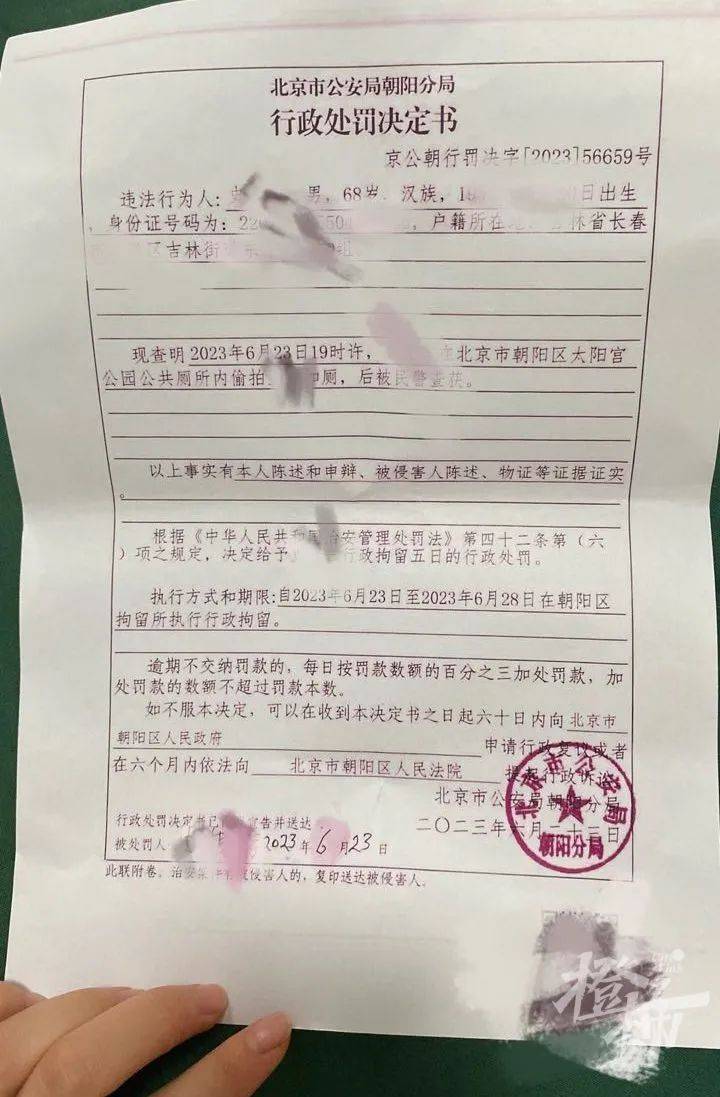 北京市公安局朝阳分局
行政处罚决定书
京公朝行罚决字[2023]56659号
违法行为人: 男, 68岁, 汉族, 日出生
, 身份证号码为: 户籍所在 林省长春
区吉林街
现查明2023年6月23日19时许, 在北京市朝阳区太阳宫
公园公共厕所内偷拍 如厕, 后被民警查获。
以上事实有本人陈述和申辩、被侵害人陈述、物证等证据证实
。
根据《中华人民共和国治安管理处罚法》第四十二条第(六
)项之规定, 决定给予 行政拘留五日的行政处罚。
执行方式和期限:自2023年6月23日至2023年6月28日在朝阳区
拘留所执行行政拘留。
逾期不交纳罚款的, 每日按罚款数额的百分之三加处罚款, 加
处罚款的数额不超过罚款本数。
如不服本决定, 可以在收到本决定书之日起六十日内向北京市
朝阳区人民政府 申请行政复议或者
在六个月内依法向 北京市朝阳区人民法院 提起行政诉讼
北京市公安局朝阳分局
二〇二三年六月二十三日
北京市公安局
朝阳分局
行政处罚决定书已 宣告并送达
被处罚人: 2023年6月23日
此联附卷。治安案件有被侵害人的, 复印送达被侵害人。
橙